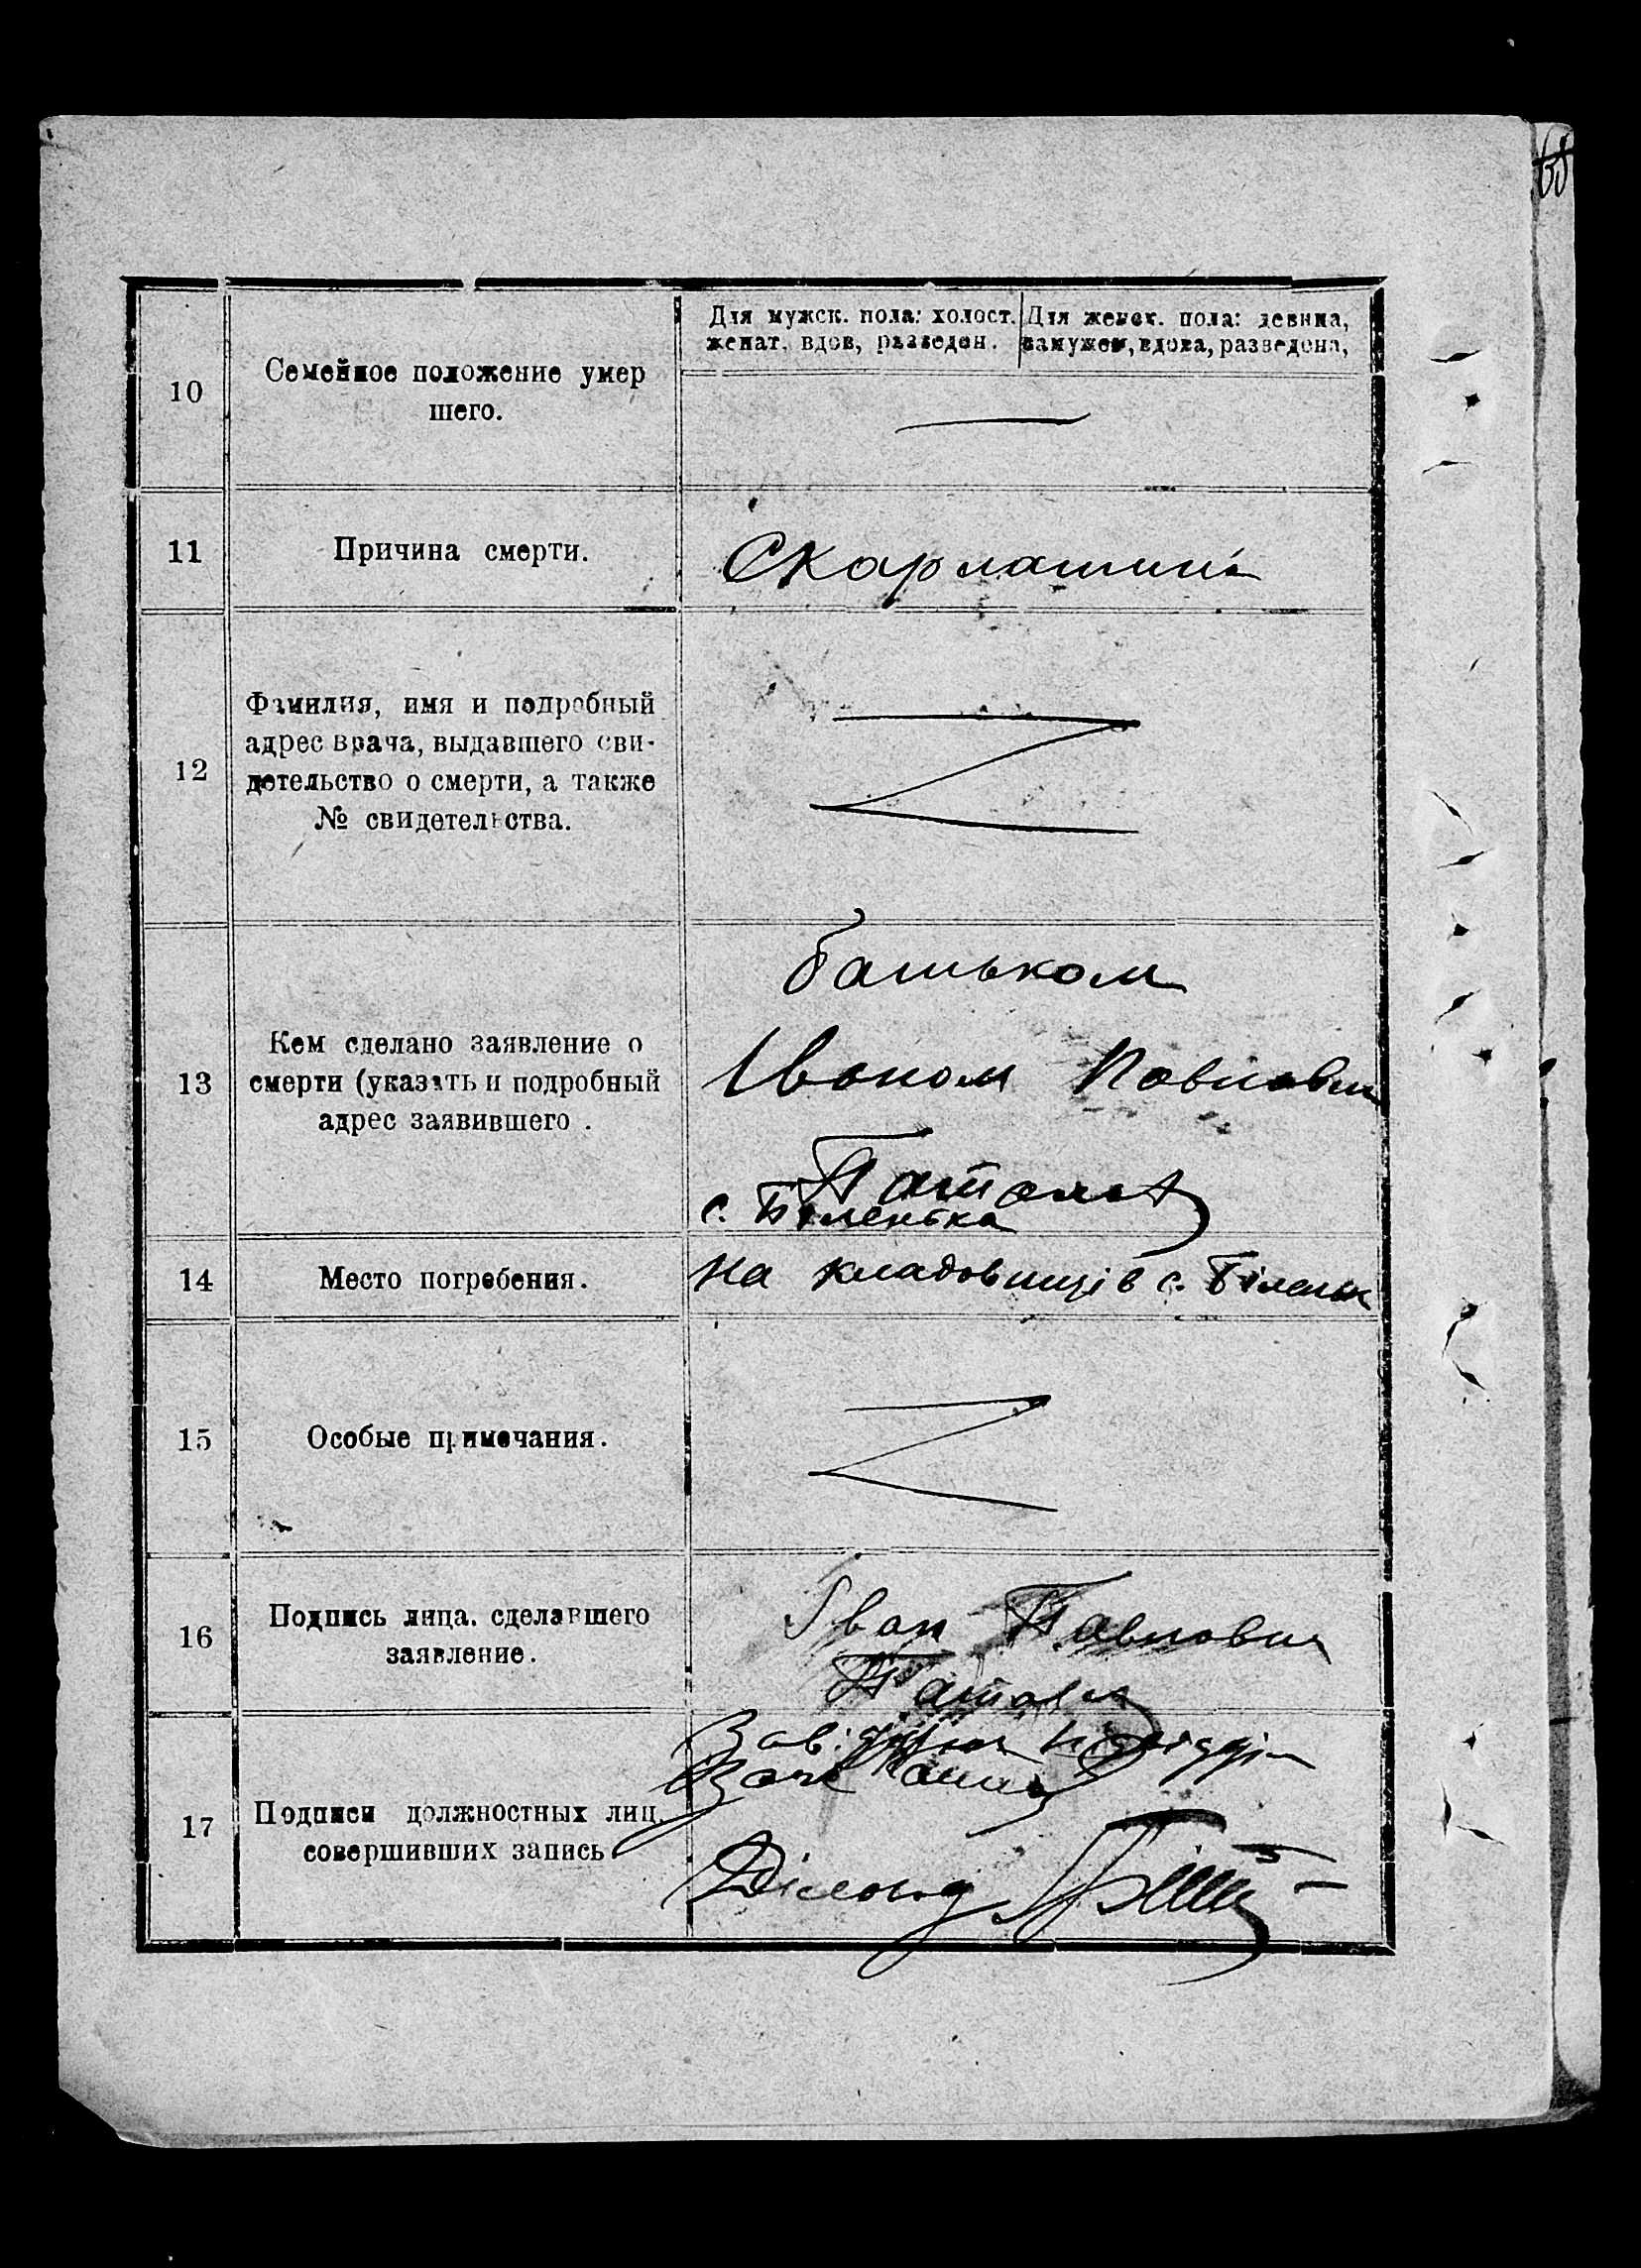 68
Для мужск. пола: холост. Для женск. пола: девица,
женат, вдов, разведен. замужем, вдова, разведена,
10 Семейное положение умер
шего.
11 Причина смерти. Скарлатина
12 Фамилия, имя и подробный
адрес врача, выдавшего сви-
детельство о смерти, а также
№ свидетельства.
13 Кем сделано заявление о
смерти (указать и подробный
адрес заявившего .
батьком
Іваном Павлович
с. Біленька
14 Место погребения. на кладовищі в с. Біленьк
15 Особые примечания.
16 Подпись лица, сделавшего
заявление.
Іван Павлович
17 Подписи должностных лиц,
совершивших запись
Діловод